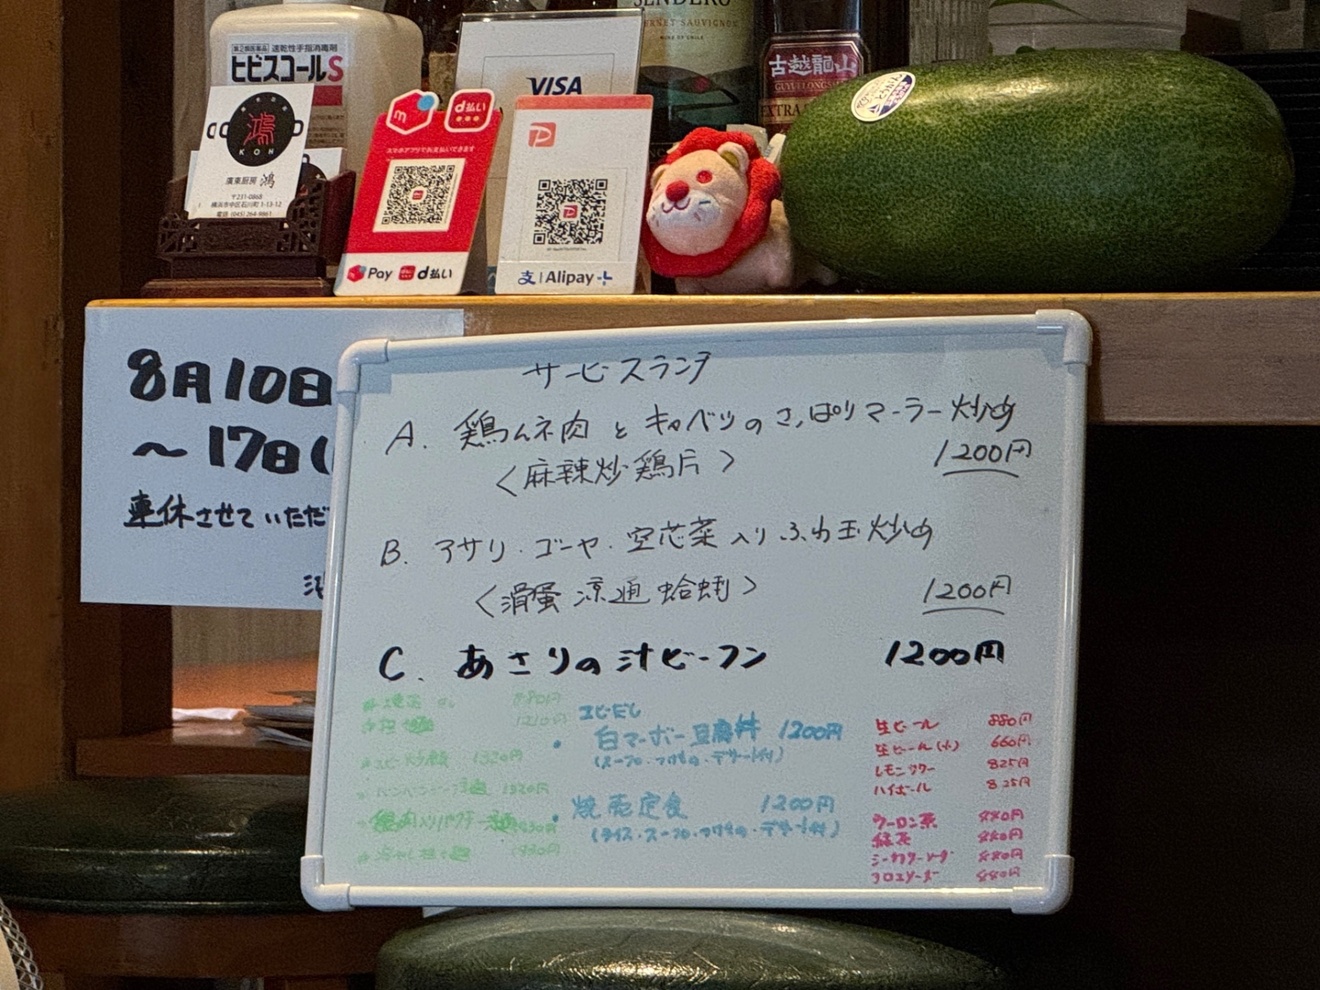 SENDERO
CABERNET SAUVIGNON
速乾性手指消毒剤
ヒビスコールS
VISA
古越龍山
EXTRA
鴻
KOH
廣東厨房 鴻
〒231-0868
横浜市中区石川町1-13-12
電話 (045) 264-9861
d払い
スマホアプリでお支払いできます
Pay d払い
支 Alipay+
8月10日
〜17日(
連休させていただ
サービスランチ
A. 鶏ムネ肉とキャベツのさっぱりマーラー炒め
1200円
〈麻辣炒鶏片〉
B. アサリ・ゴーヤ・空芯菜入りふわ玉炒め
〈滑蛋涼通蛤蜊〉
1200円
C. あさりの汁ビーフン 1200円
880円
1210円
1320円
1320円
エビだし
・白マーボー豆腐丼 1200円
(スープ・つけもの・デザート付)
・焼売定食 1200円
(ライス・スープ・つけもの・デザート付)
生ビール 880円
生ビール(小) 660円
レモンサワー 825円
ハイボール 825円
ウーロン茶 440円
緑茶 440円
440円
440円